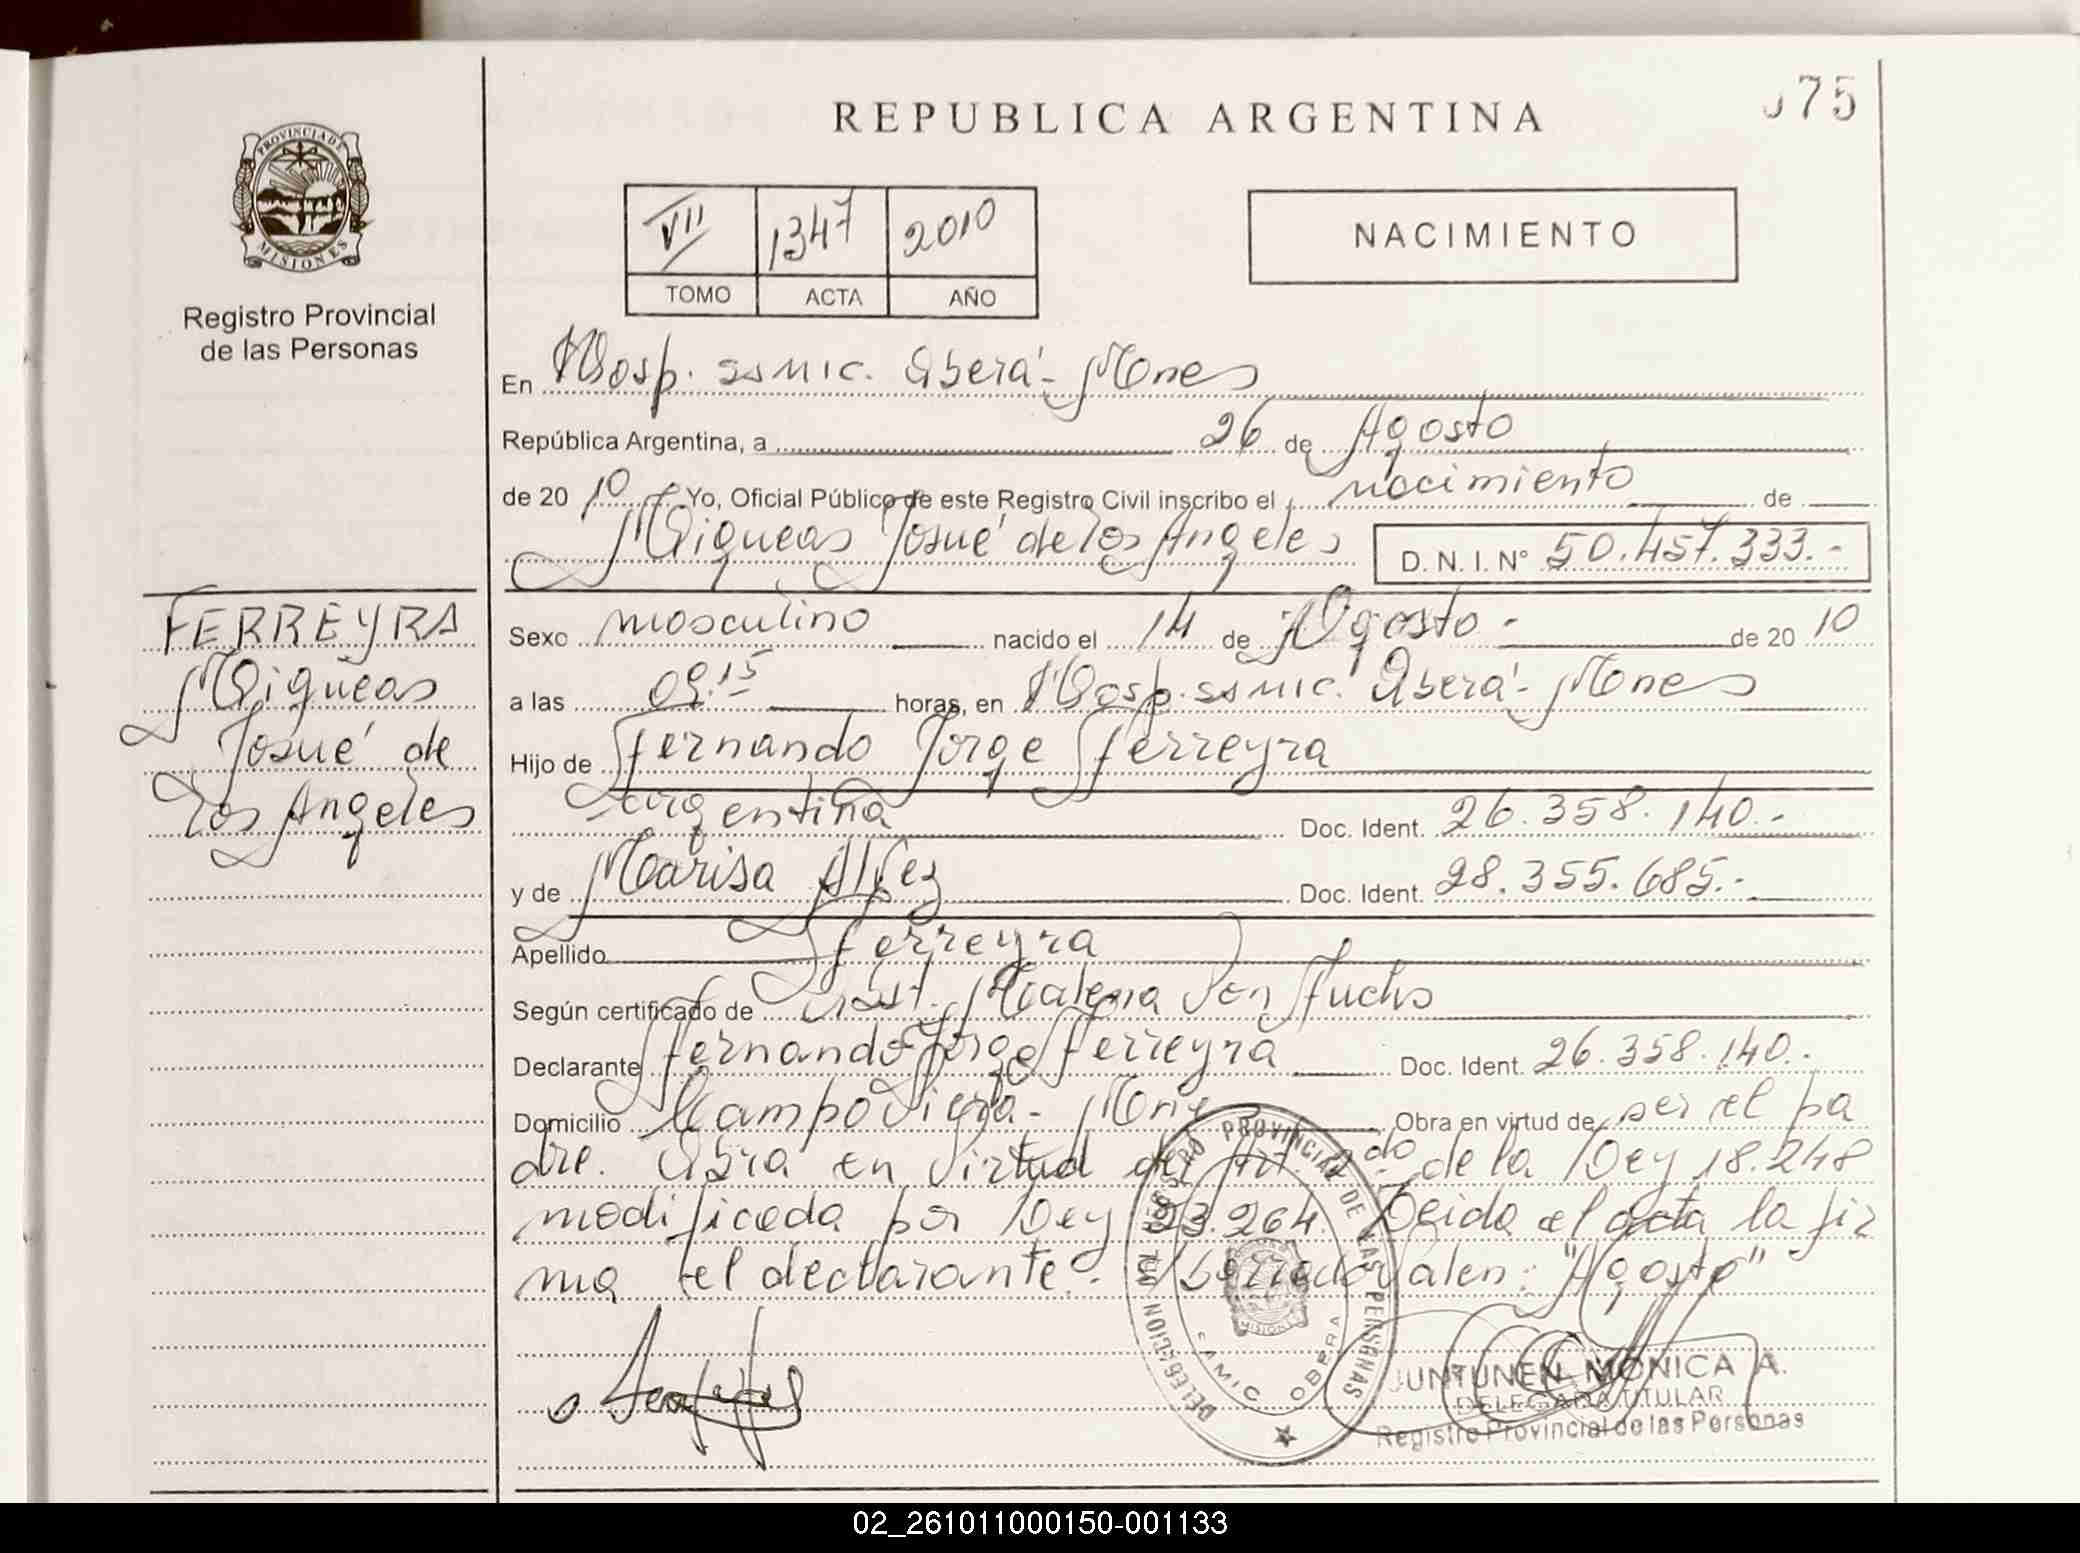 075
REPUBLICA ARGENTINA
PROVINCIA DE
MISIONES
Registro Provincial
de las Personas
VII 1347 2010
TOMO ACTA AÑO
NACIMIENTO
En Hosp. SAMIC. Oberá - Mnes
República Argentina, a 26 de Agosto
de 20 10 Yo, Oficial Público de este Registro Civil inscribo el nacimiento de
Miqueas Josué de los Angeles D. N. I. N° 50.457.333.-
FERREYRA
Miqueas
Josué de
los Angeles
Sexo masculino nacido el 14 de Agosto - de 20 10
a las 09.15 horas, en Hosp. SAMIC. Oberá - Mnes
Hijo de Fernando Jorge Ferreyra
Argentina Doc. Ident. 26.358.140.-
y de Marisa Alvez Doc. Ident. 28.355.685.-
Apellido Ferreyra
Según certificado de Obst. Malena Von Fuchs
Declarante Fernando Jorge Ferreyra Doc. Ident. 26.358.140.-
Domicilio Campo Viera - Mnes Obra en virtud de ser el pa
dre. Obra en virtud del Art. 2do de la Ley 18.248
modificada por Ley 23.264. Leida el acta la fir
ma el declarante. - Borrado Valen: "Agosto"
REGISTRO PROVINCIAL DE LAS PERSONAS
DELEGACION
MISIONES
SAMIC OBERA
JUNTUNEN MONICA A.
DELEGADA TITULAR
Registro Provincial de las Personas
02_261011000150-001133